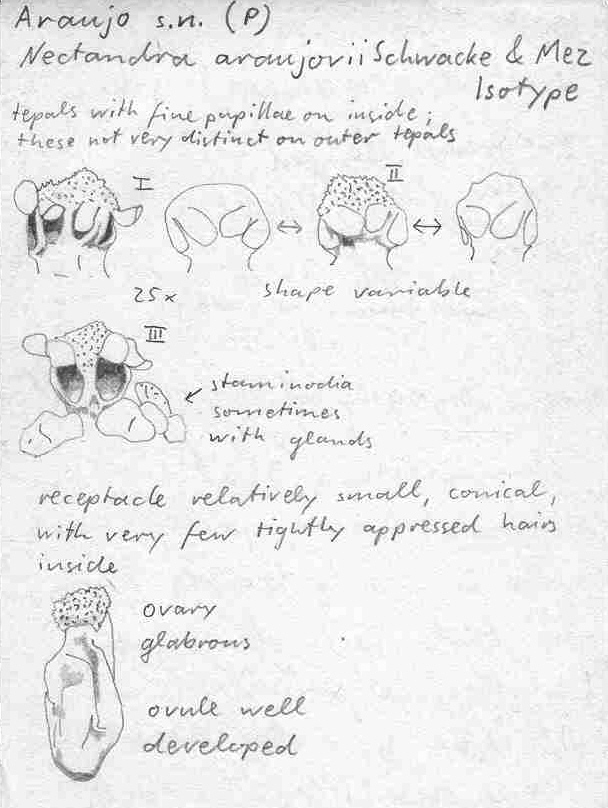 Araujo s.n. (P)
Nectandra araujovii Schwacke & Mez
Isotype
tepals with fine papillae on inside;
these not very distinct on outer tepals
I
II
25x
shape variable
III
staminodia
sometimes
with glands
receptacle relatively small, conical,
with very few tightly appressed hairs
inside
ovary
glabrous
ovule well
developed